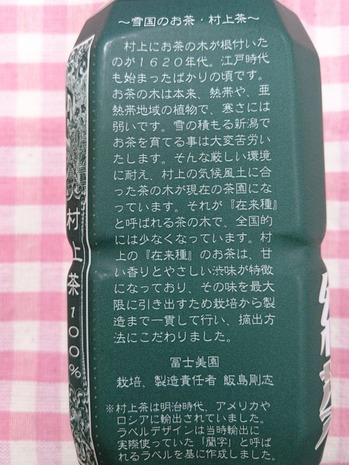 ～雪国のお茶・村上茶～
村上にお茶の木が根付いた
のが1620年代。江戸時代
も始まったばかりの頃です。
お茶の木は本来、熱帯や、亜
熱帯地域の植物で、寒さには
弱いです。雪の積もる新潟で
お茶を育てる事は大変苦労い
たします。そんな厳しい環境
に耐え、村上の気候風土に合
った茶の木が現在の茶園にな
っています。それが『在来種』
と呼ばれる茶の木で、全国的
には少なくなっています。村
上の『在来種』のお茶は、甘
い香りとやさしい渋味が特徴
になっており、その味を最大
限に引き出すため栽培から製
造まで一貫して行い、摘出方
法にこだわりました。
冨士美園
栽培、製造責任者 飯島剛志
※村上茶は明治時代、アメリカや
ロシアに輸出されていました。
ラベルデザインは当時輸出に
実際使っていた「蘭字」と呼ば
れるラベルを基に作成しました。
村上茶100%